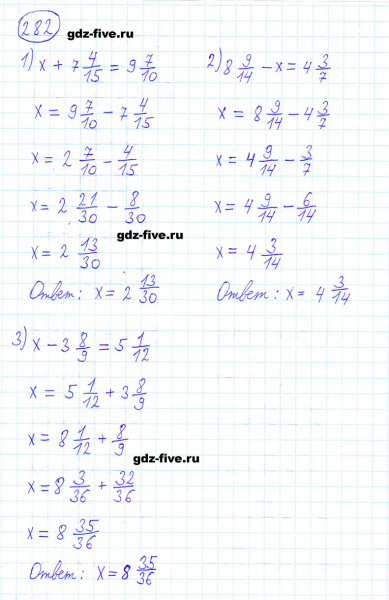 282
gdz-five.ru
1) x + 7 4/15 = 9 7/10
x = 9 7/10 - 7 4/15
x = 2 7/10 - 4/15
x = 2 21/30 - 8/30
gdz-five.ru
x = 2 13/30
Ответ: x = 2 13/30
2) 8 9/14 - x = 4 3/7
x = 8 9/14 - 4 3/7
x = 4 9/14 - 3/7
x = 4 9/14 - 6/14
x = 4 3/14
Ответ: x = 4 3/14
3) x - 3 8/9 = 5 1/12
x = 5 1/12 + 3 8/9
x = 8 1/12 + 8/9
gdz-five.ru
x = 8 3/36 + 32/36
x = 8 35/36
Ответ: x = 8 35/36